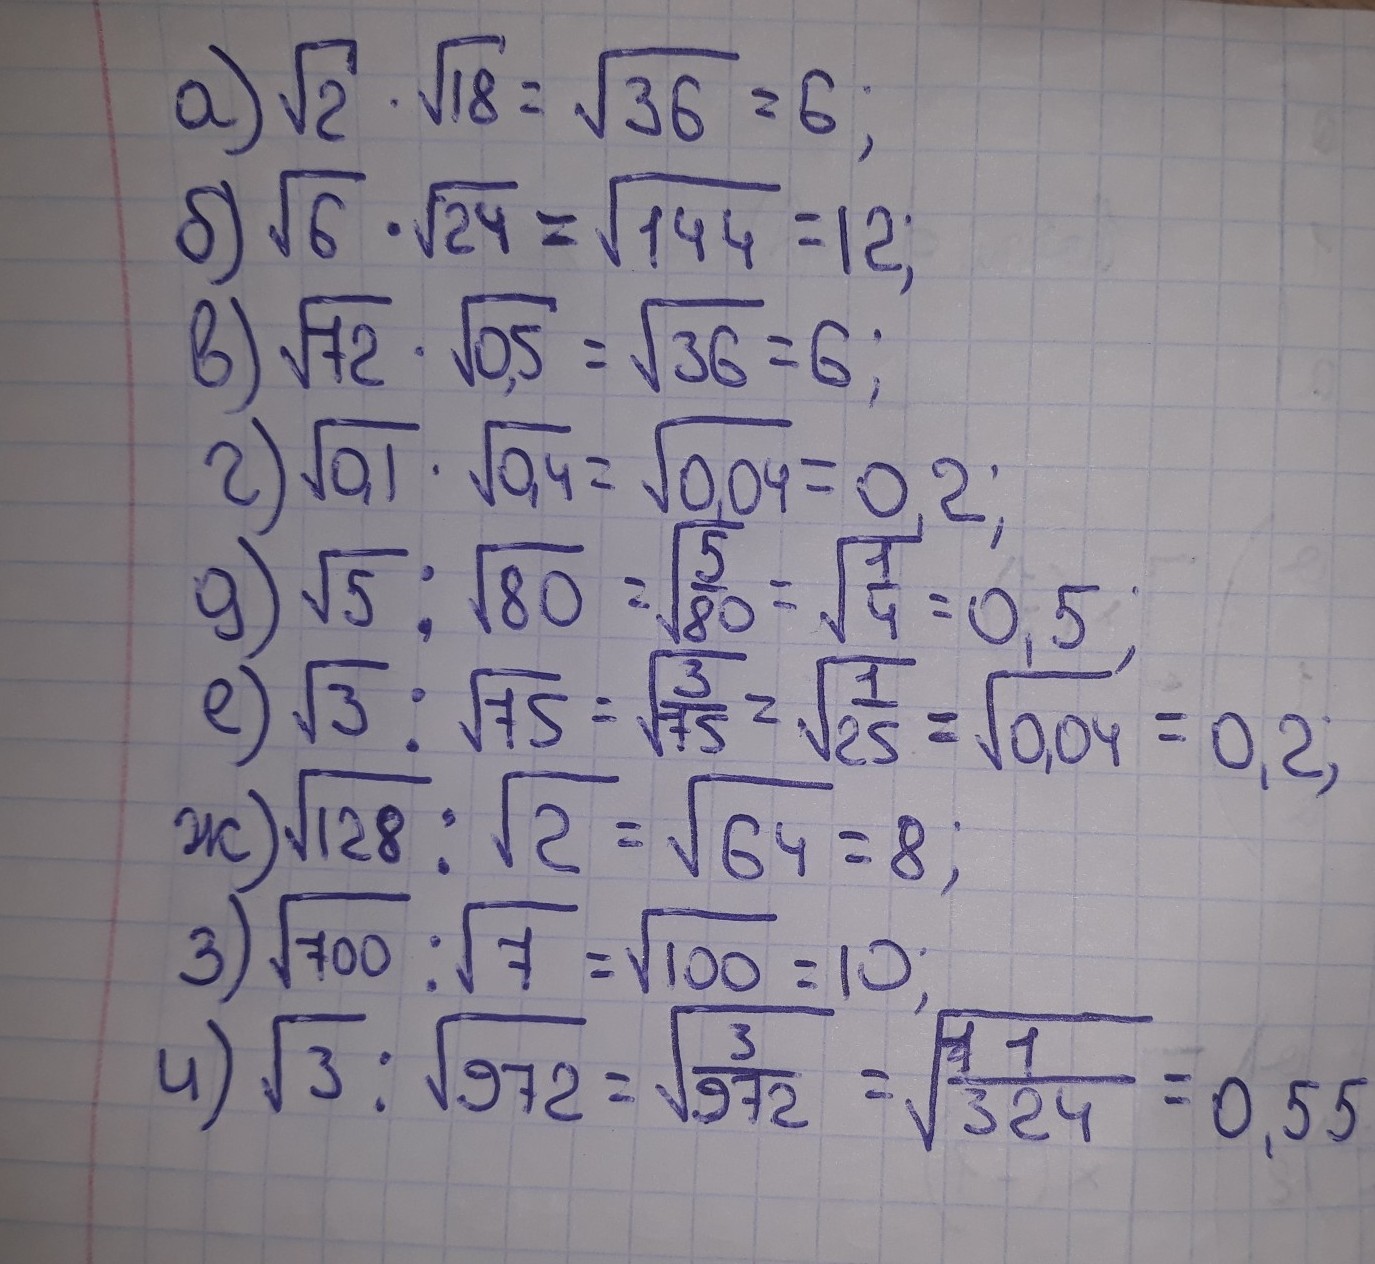 а) √2 · √18 = √36 = 6;
б) √6 · √24 = √144 = 12;
в) √72 · √0,5 = √36 = 6;
г) √0,1 · √0,4 = √0,04 = 0,2;
д) √5 : √80 = √5/80 = √1/4 = 0,5;
е) √3 : √75 = √3/75 = √1/25 = √0,04 = 0,2;
ж) √128 : √2 = √64 = 8;
з) √700 : √7 = √100 = 10;
и) √3 : √972 = √3/972 = √1/324 = 0,55